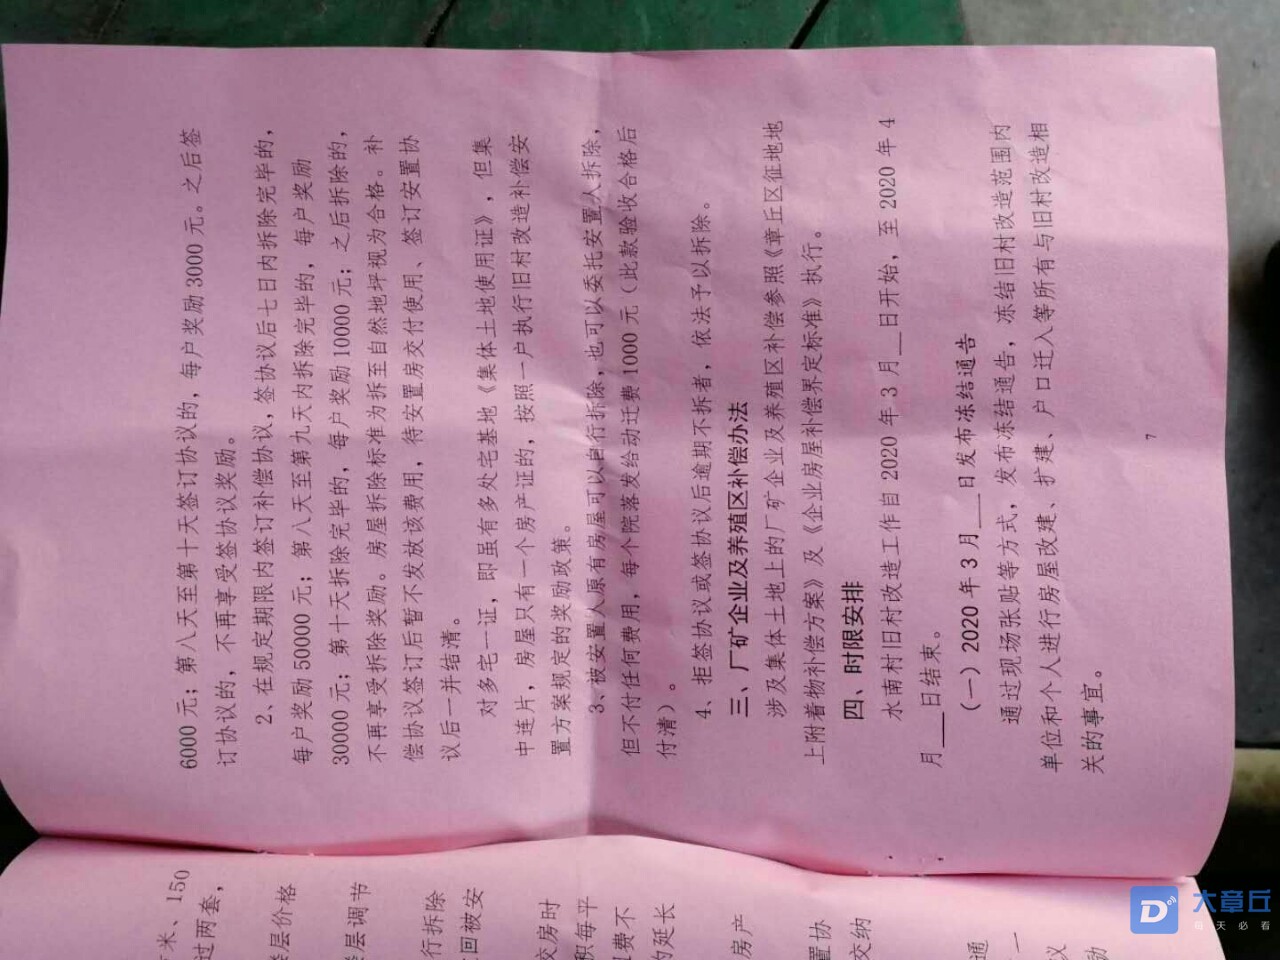 6000 元；第八天至第十天签订协议的，每户奖励 3000 元。之后签
订协议的，不再享受签协议奖励。
2、在规定期限内签订补偿协议，签协议后七日内拆除完毕的，
每户奖励 50000 元；第八天至第九天内拆除完毕的，每户奖励
30000 元；第十天拆除完毕的，每户奖励 10000 元；之后拆除的，
不再享受拆除奖励。房屋拆除标准为拆至自然地坪视为合格。补
偿协议签订后暂不发放该费用，待安置房交付使用、签订安置协
议后一并结清。
对多宅一证，即虽有多处宅基地《集体土地使用证》，但集
中连片，房屋只有一个房产证的，按照一户执行旧村改造补偿安
置方案规定的奖励政策。
3、被安置人原有房屋可以自行拆除，也可以委托安置人拆除，
但不付任何费用，每个院落发给动迁费 1000 元（此款验收合格后
付清）。
4、拒签协议或签协议后逾期不拆者，依法予以拆除。
三、厂矿企业及养殖区补偿办法
涉及集体土地上的厂矿企业及养殖区补偿参照《章丘区征地地
上附着物补偿方案》及《企业房屋补偿界定标准》执行。
四、时限安排
水南村旧村改造工作自 2020 年 3 月__日开始，至 2020 年 4
月__日结束。
（一）2020 年 3 月__日发布冻结通告
通过现场张贴等方式，发布冻结通告，冻结旧村改造范围内
单位和个人进行房屋改建、扩建、户口迁入等所有与旧村改造相
关的事宜。
7
米、150
过两套，
层价格
层调节
行拆除
回被安
交房时
积每平
费不
的延长
房产
置协
交纳
通
一
议
励
大章丘
每天必看